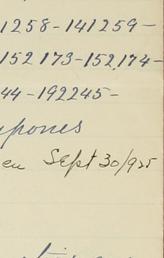 1258-141259-
152173-152,174-
44-192245-
upones
en Sept 30/925